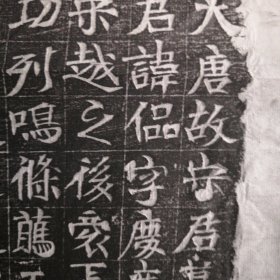 大唐故居
君諱侣字慶
越之後裔
功列鳴條薦